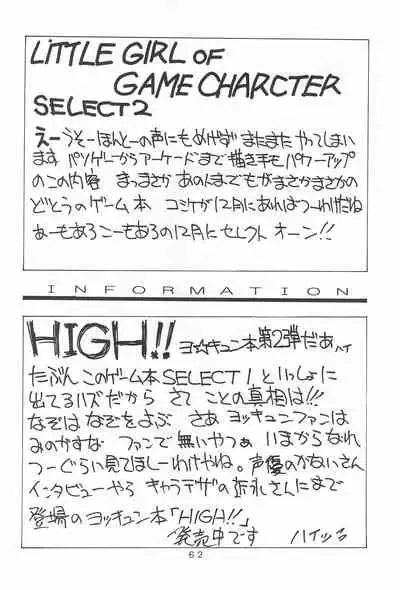 LiTTLE GIRL OF
GAME CHARCTER
SELECT2
えーうそーほんとーの声にもめげず またまた やってしまい
ます パソゲーからアーケードまで 描き手も パワーアップ
のこの内容 まっまさか あのんまでもがまさかまさかの
どとうのゲーム本 コミケが12月にあればつーわけだね
あーもあろこーもあろの12月に セレクト オーン!!
INFORMATION
HIGH!! ヨッ☆キュン本第2弾だぁハイ
たぶん このゲーム本 SELECT 1 といっしょに
出てるハズだから さて ことの真相は!!!
なぞは なぞをよぶ さあ ヨッキュンファンは
みのがすな ファンで無いやつぁ いまからなれ
つーぐらい見てほしーわけやね。声優のかないさん
インタビューやら キャラデザの さんにまで
登場のヨッキュン本「HIGH!!」
発売中です ハイッ
62